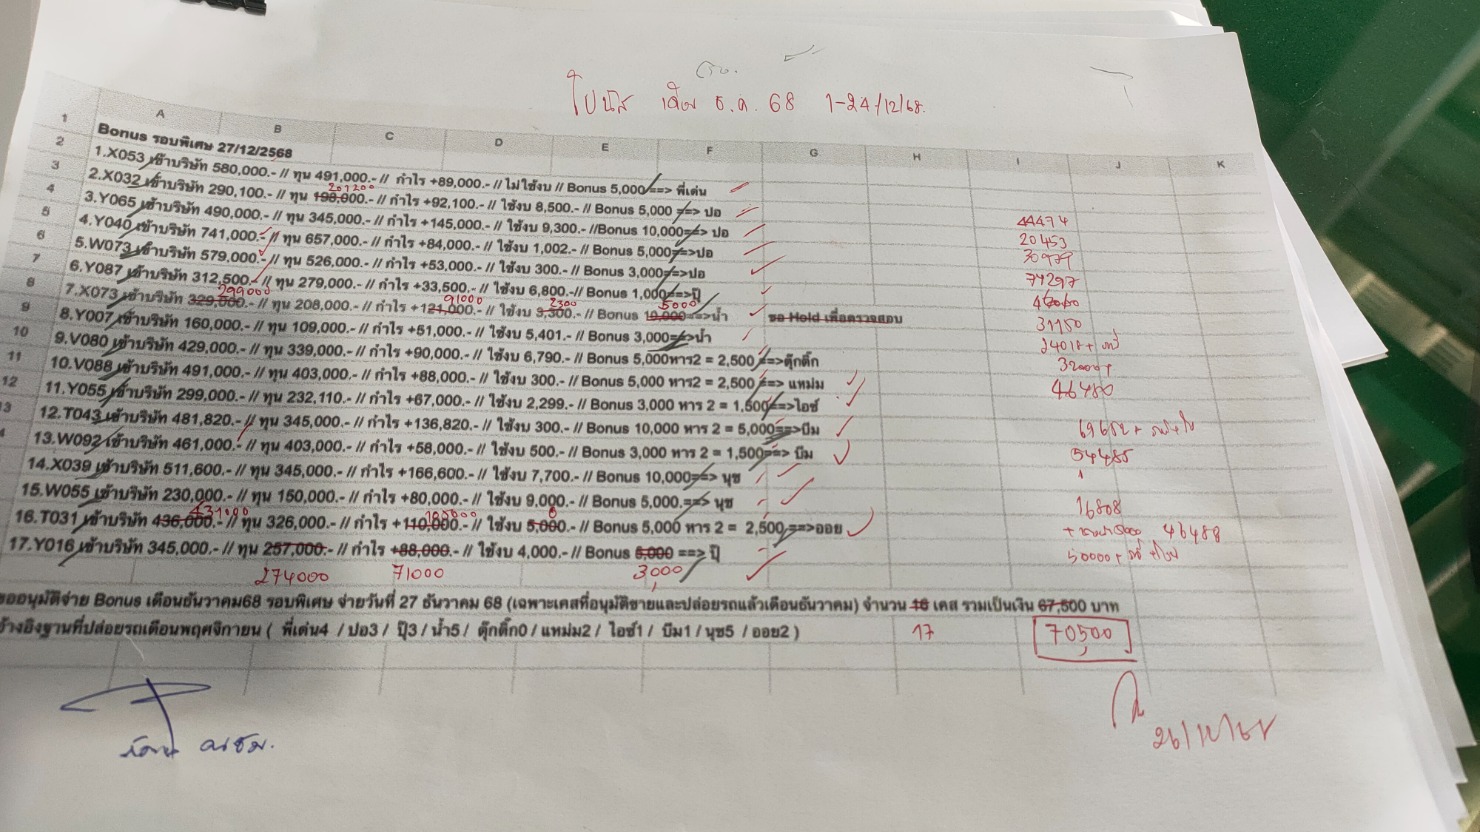 โบนัส เดือน ธ.ค. 68 1-24/12/68
A B C D E F G H I J K
1 Bonus รอบพิเศษ 27/12/2568
2 1.X053 เข้าบริษัท 580,000.- // ทุน 491,000.- // กำไร +89,000.- // ไม่ใช้งบ // Bonus 5,000 ==> พี่เด่น
201200
3 2.X032 เข้าบริษัท 290,100.- // ทุน 198,000.- // กำไร +92,100.- // ใช้งบ 8,500.- // Bonus 5,000 ==> ปอ
4 3.Y065 เข้าบริษัท 490,000.- // ทุน 345,000.- // กำไร +145,000.- // ใช้งบ 9,300.- //Bonus 10,000==> ปอ
44474
5 4.Y040 เข้าบริษัท 741,000.- // ทุน 657,000.- // กำไร +84,000.- // ใช้งบ 1,002.- // Bonus 5,000==>ปอ
20453
6 5.W073 เข้าบริษัท 579,000.- // ทุน 526,000.- // กำไร +53,000.- // ใช้งบ 300.- // Bonus 3,000==>ปอ
7 6.Y087 เข้าบริษัท 312,500.- // ทุน 279,000.- // กำไร +33,500.- // ใช้งบ 6,800.- // Bonus 1,000==>ปุ๊
74297
299000 91000 2300 5000
8 7.X073 เข้าบริษัท 329,000.- // ทุน 208,000.- // กำไร +121,000.- // ใช้งบ 9,300.- // Bonus 10,000==>น้ำ ขอ Hold เพื่อตรวจสอบ
31150
9 8.Y007 เข้าบริษัท 160,000.- // ทุน 109,000.- // กำไร +51,000.- // ใช้งบ 5,401.- // Bonus 3,000==>น้ำ
10 9.V080 เข้าบริษัท 429,000.- // ทุน 339,000.- // กำไร +90,000.- // ใช้งบ 6,790.- // Bonus 5,000หาร2 = 2,500 ==>ตุ๊กติ๊ก
11 10.V088 เข้าบริษัท 491,000.- // ทุน 403,000.- // กำไร +88,000.- // ใช้งบ 300.- // Bonus 5,000 หาร2 = 2,500 ==> แหม่ม
46480
12 11.Y055 เข้าบริษัท 299,000.- // ทุน 232,110.- // กำไร +67,000.- // ใช้งบ 2,299.- // Bonus 3,000 หาร 2 = 1,500==>ไอซ์
13 12.T043 เข้าบริษัท 481,820.- // ทุน 345,000.- // กำไร +136,820.- // ใช้งบ 300.- // Bonus 10,000 หาร 2 = 5,000==>บีม
13.W092 เข้าบริษัท 461,000.- // ทุน 403,000.- // กำไร +58,000.- // ใช้งบ 500.- // Bonus 3,000 หาร 2 = 1,500==> บีม
54485
14.X039 เข้าบริษัท 511,600.- // ทุน 345,000.- // กำไร +166,600.- // ใช้งบ 7,700.- // Bonus 10,000==> นุช
15.W055 เข้าบริษัท 230,000.- // ทุน 150,000.- // กำไร +80,000.- // ใช้งบ 9,000.- // Bonus 5,000.==> นุช
16808
431000 105000 0
16.T031 เข้าบริษัท 436,000.- // ทุน 326,000.- // กำไร +110,000.- // ใช้งบ 5,000.- // Bonus 5,000 หาร 2 = 2,500==>ออย
46488
17.Y016 เข้าบริษัท 345,000.- // ทุน 257,000.- // กำไร +88,000.- // ใช้งบ 4,000.- // Bonus 5,000 ==> ปุ๊
274000 71000 3000
ขออนุมัติจ่าย Bonus เดือนธันวาคม68 รอบพิเศษ จ่ายวันที่ 27 ธันวาคม 68 (เฉพาะเคสที่อนุมัติขายและปล่อยรถแล้วเดือนธันวาคม) จำนวน 16 เคส รวมเป็นเงิน 67,500 บาท
อ้างอิงฐานที่ปล่อยรถเดือนพฤศจิกายน ( พี่เด่น4 / ปอ3 / ปุ๊3 / น้ำ5 / ตุ๊กติ๊ก0 / แหม่ม2 / ไอซ์1 / บีม1 / นุช5 / ออย2 ) 17 70500
26/12/68